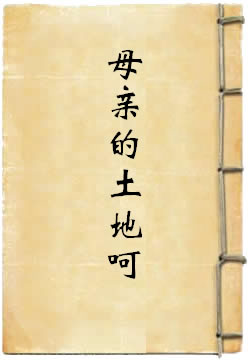 母亲的土地呵